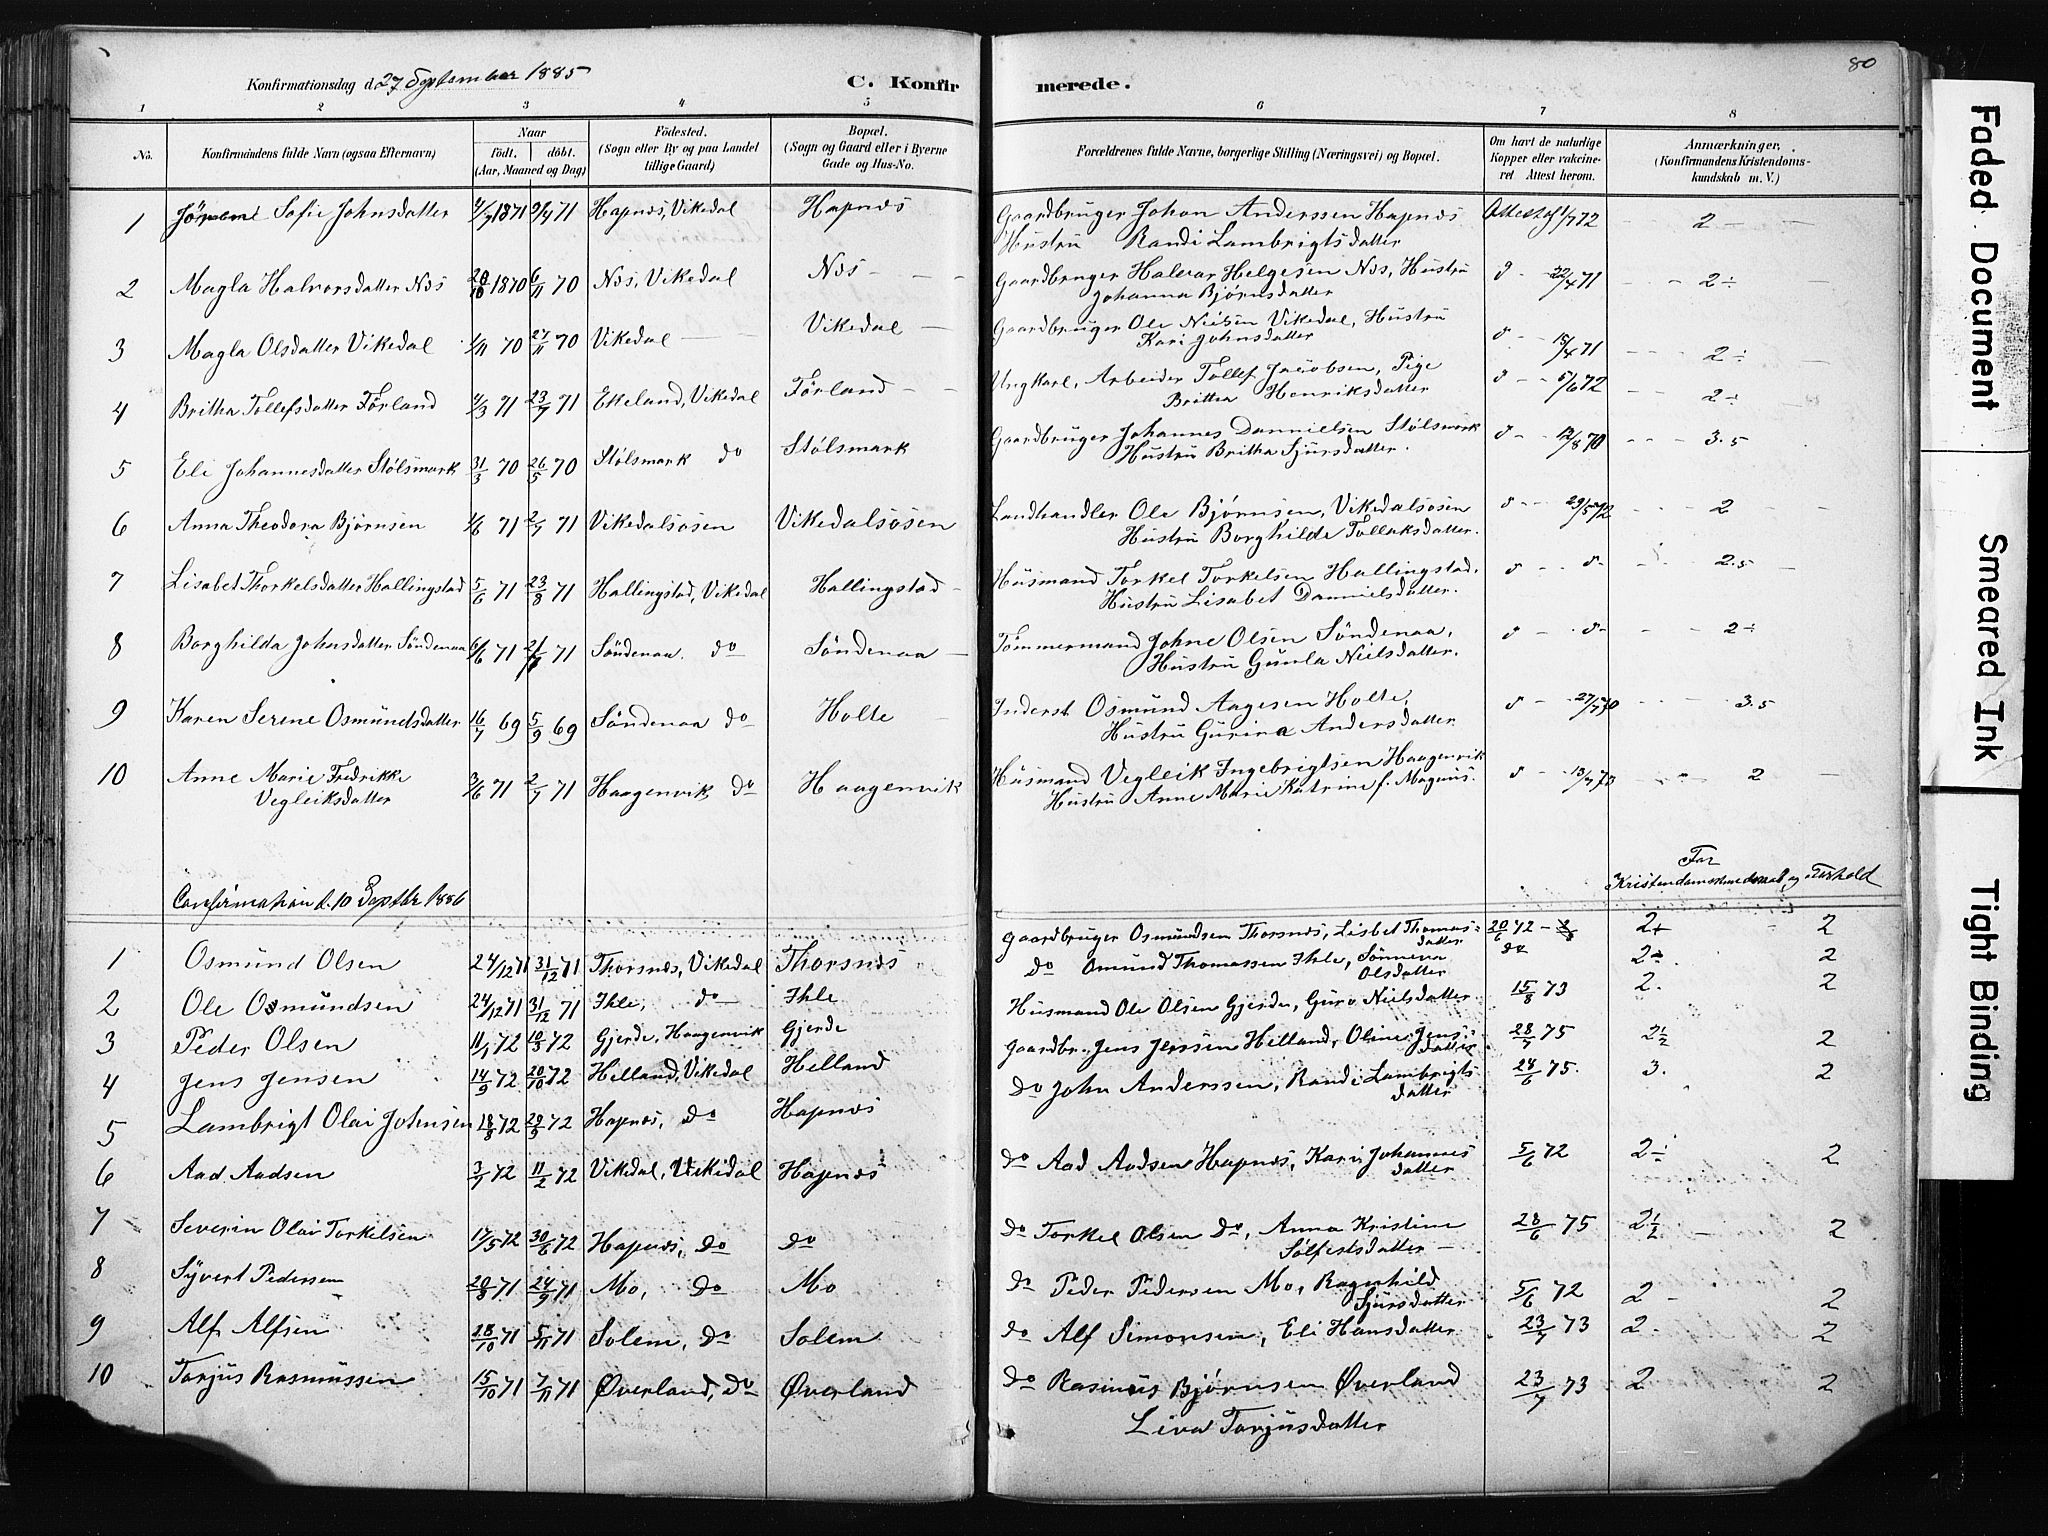 80
Konfirmationsdag d. 27 September 1885 C. Konfirmerede.
1 2 3 4 5 6 7 8
No. Konfirmandens fulde Navn (ogsaa Efternavn) Naar födt. döbt. (Aar, Maaned og Dag) Födested. (Sogn eller By og paa Landet tillige Gaard) Bopæl. (Sogn og Gaard eller i Byerne Gade og Hus-No. Forældrenes fulde Navne, borgerlige Stilling (Næringsvei) og Bopæl. Om havt de naturlige Kopper eller vakcineret Attest herom. Anmærkninger. (Konfirmandens Kristendomskundskab m. V.)
1 Sofie Johnsdatter 4/7 1871 9/7 71 Hapnæs, Vikedal Hapnæs Gaardbruger Johan Anderssen Hapnæs Attest af 1/7 72 2
Hustru Randi Lambrigtsdatter
2 Magla Halvorsdatter Næs 28/10 1870 6/11 70 Næs, Vikedal Næs Gaardbruger Halvar Helgesen Næs, Hustru 22/4 71 2÷
Johanna Bjørnsdatter
3 Magla Olsdatter Vikedal 1/11 70 27/11 70 Vikedal Vikedal Gaardbruger Ole Nielsen Vikedal, Hustru 15/4 71 2÷
Kari Johnsdatter
4 Britha Tollefsdatter Førland 4/3 71 23/7 71 Ekeland, Vikedal Førland Ungkarl, Arbeider Tollef Jacobsen, Pige 5/6 72 2÷
Britha Henriksdatter
5 Eli Johannesdatter Stølsmark 31/3 70 26/5 70 Stølsmark do Stølsmark Gaardbruger Johannes Dannielsen Stølsmork 12/8 70 3.5
Hustru Britha Sjursdatter.
6 Anna Theodora Bjørnsen 1/6 71 2/7 71 Vikedalsosen Vikedalsosen Landhandler Ole Bjørnsen, Vikedalsosen 29/5 72 2
Hustru Borghilde Tollaksdatter.
7 Lisabet Thorkelsdatter Hallingstad 5/6 71 23/8 71 Hallingstad, Vikedal Hallingstad Husmand Torkel Torkelsen Hallingstad, 2.5
Hustru Lisabet Dannielsdatter.
8 Borghilda Johnsdatter Söndenaa 6/6 71 2/7 71 Söndenaa. do Söndenaa Tömmermand Johne Olsen Söndenaa, 2÷
Hustru Gunla Nielsdatter.
9 Karen Serene Osmundsdatter 16/7 69 5/9 69 Söndenaa do Holte Inderst Osmund Aagesen Holte, 27/7 70 3.5
Hustru Gurina Andersdatter
10 Anne Marie Fredrikke 3/6 71 2/7 71 Haagenvik do Haagenvik Husmand Vegleik Ingebrigtsen Haagenvik 13/7 73 2
Vegleiksdatter Hustru Anne Marie Katrine f. Magnus.
For
Confirmation d. 10 Septbr 1886 Kristendomskundskab og Forhold
1 Osmund Olsen 24/12 71 31/12 71 Thorsnæs, Vikedal Thorsnæs Gaardbruger Osmundsen Thorsnæs, Lisbet Thomasdatter 20/6 72 2+ 2
2 Ole Osmundsen 24/12 71 31/12 71 Ihle, do Ihle do Omund Thomassen Ihle, Sønneva Olsdatter do 2÷ 2
3 Peder Olsen 11/1 72 10/3 72 Gjerde, Haagenvik Gjerde Husmand Ole Olsen Gjerde, Guro Nielsdatter 15/8 73 2. 2
4 Jens Jensen 14/9 72 20/10 72 Helland, Vikedal Helland Gaardbr. Jens Jenssen Helland, Oline Jensdatter 28/7 75 2½ 2
5 Lambrigt Olai Johnsen 18/8 72 29/9 72 Hapnæs, do Hapnæs do John Anderssen, Randi Lambrigtsdatter 28/6 75. 3. 2
6 Aad Aadsen 3/1 72 11/2 72 Vikedal, Vikedal Hapnæs do Aad Aadsen Hapnæs, Kari Johannesdatter 5/6 72 2÷ 2
7 Severin Olai Torkelsen 17/5 72 30/6 72 Hapnæs, do do do Torkel Olsen do, Anna Kristine 28/6 75 2½ 2
Sølfestsdatter
8 Syvert Pedersen 20/8 71 24/9 71 Mo, do Mo do Peder Pedersen Mo, Ragnhild 5/6 72 2 2
Sjursdatter
9 Alf Alfsen 18/10 71 5/11 71 Solem, do Solem do Alf Simonsen, Eli Hansdatter 23/7 73 2. 2
10 Torjus Rasmussen 15/10 71 7/11 71 Øverland, do Øverland do Rasmus Bjørnsen Øverland 23/7 73 2 2
Liva Torjusdatter
Faded Document
Smeared Ink
Tight Binding